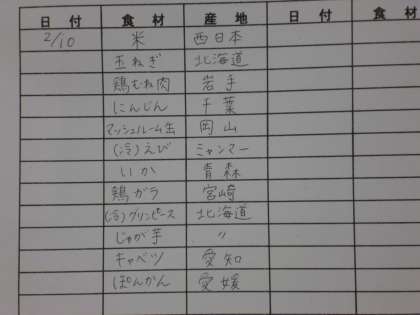 日付 食材 産地 日付 食材
2/10 米 西日本
玉ねぎ 北海道
鶏むね肉 岩手
にんじん 千葉
マッシュルーム缶 岡山
(冷)えび ミャンマー
いか 青森
鶏ガラ 宮崎
(冷)グリンピース 北海道
じゃが芋 〃
キャベツ 愛知
ぽんかん 愛媛